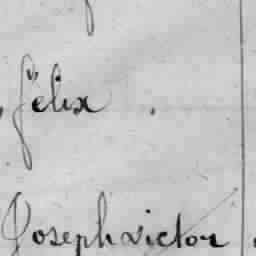 Félix .
Joseph victor .